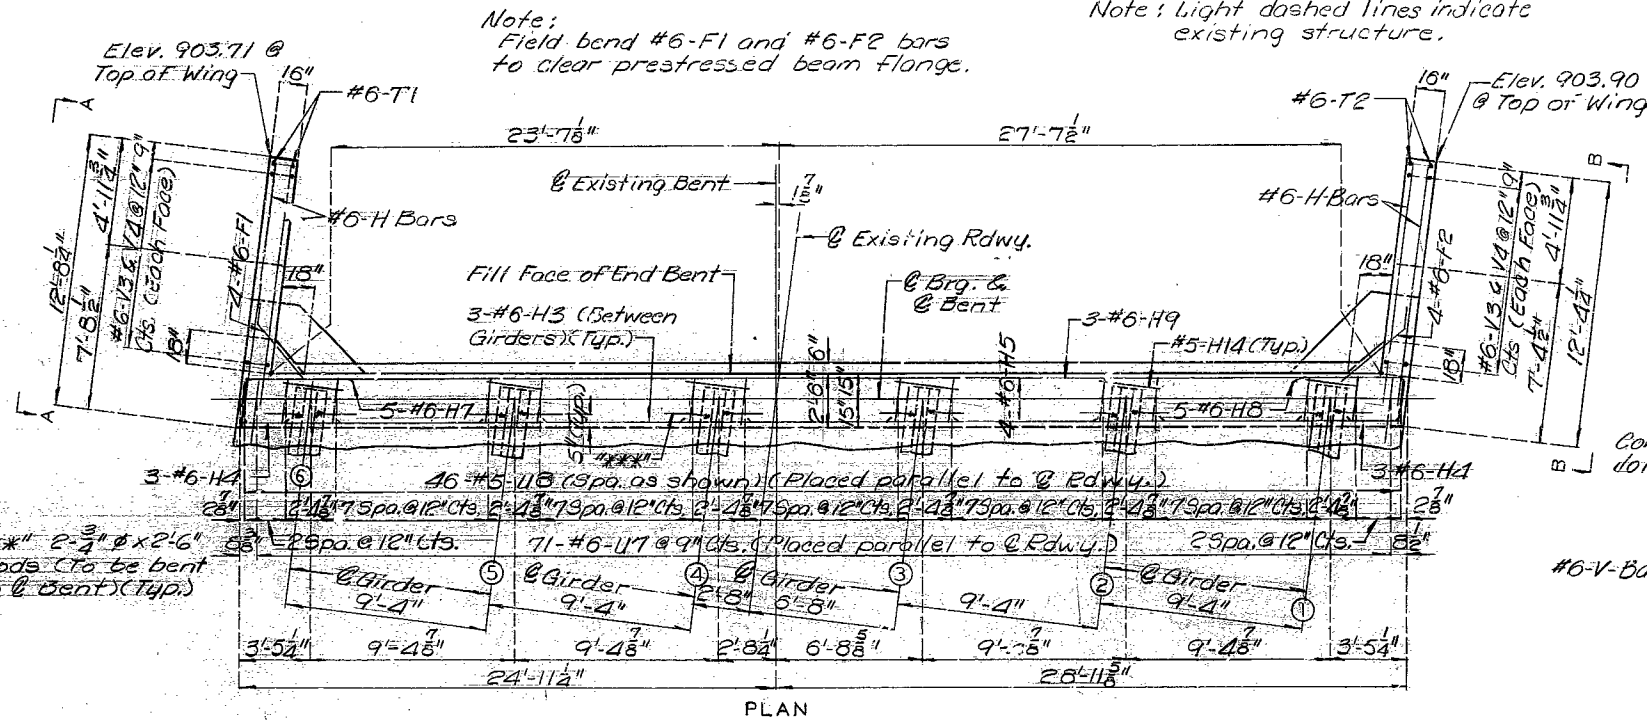 Note:
Field bend #6-F1 and #6-F2 bars
to clear prestressed beam flange.
Note: Light dashed lines indicate
existing structure.
Elev. 903.71 @
Top of Wing
16"
#6-T1
#6-T2
16"
Elev. 903.90
@ Top of Wing
A
B
23'-7 1/8"
27'-7 1/2"
℄ Existing Bent
1 7/8"
℄ Existing Rdwy.
#6-H Bars
#6-H-Bars
12'-8 1/4"
7'-8 1/2"
4'-11 3/4"
#6-V3 & V4 @ 12" 9"
Cts. (Each Face)
4-#6-F1
18"
18"
Fill Face of End Bent
3-#6-H3 (Between
Girders)(Typ.)
℄ Brg. &
℄ Bent
3-#6-H9
#5-H14(Typ.)
18"
18"
4-#6-F2
#6-V3 & V4 @ 12" 9"
Cts (Each Face)
7'-4 1/2"
4'-11 3/4"
12'-4 1/4"
2'-6" 6"
15" 15"
4-#6-H5
5-#6-H7
5-#6-H8
5"(Typ.)
"***"
A
B
3-#6-H4
3-#6-H4
46-#5-U8 (Spa. as shown)(Placed parallel to ℄ Rdwy.)
2 7/8" 2'-4 7/8" 7 Spa. @ 12" Cts. 2'-4 7/8" 7 Spa. @ 12" Cts. 2'-4 7/8" 7 Spa. @ 12" Cts. 2'-4 7/8" 7 Spa. @ 12" Cts. 2'-4 7/8" 7 Spa. @ 12" Cts. 2'-4 7/8" 2 7/8"
2 Spa. @ 12" Cts. 71-#6-U7 @ 9" Cts. (Placed parallel to ℄ Rdwy.) 2 Spa. @ 12" Cts. 8 1/2"
2-3/4" ø x 2'-6"
(To be bent
℄ Bent)(Typ.)
#6-V-Ba
6 5 4 3 2 1
℄ Girder ℄ Girder ℄ Girder ℄ Girder
9'-4" 9'-4" 2'-8" 6'-8" 9'-4" 9'-4"
3'-5 1/4" 9'-4 7/8" 9'-4 7/8" 2'-8 1/4" 6'-8 5/8" 9'-4 7/8" 3'-5 1/4"
24'-11 1/4" 28'-11 5/8"
PLAN